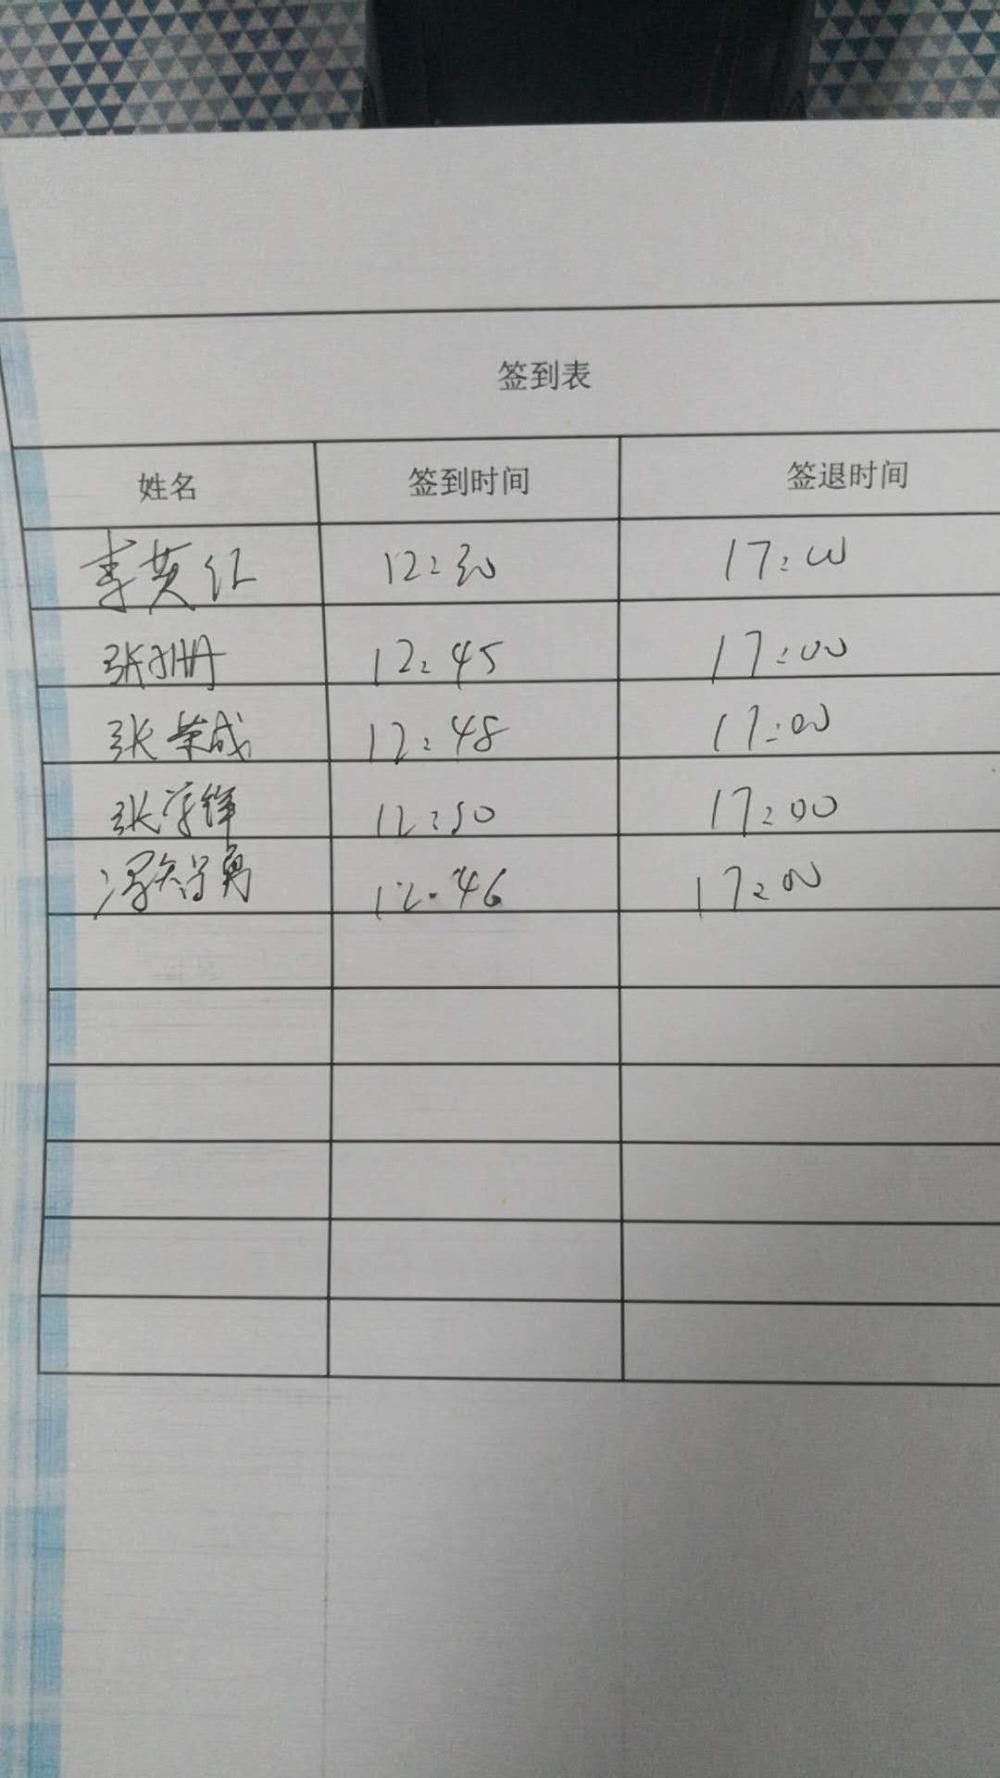 签到表
姓名 签到时间 签退时间
李英红 12:30 17:00
张 12:45 17:00
张荣成 12:48 17:00
张学锋 12:50 17:00
冯智勇 12:46 17:00